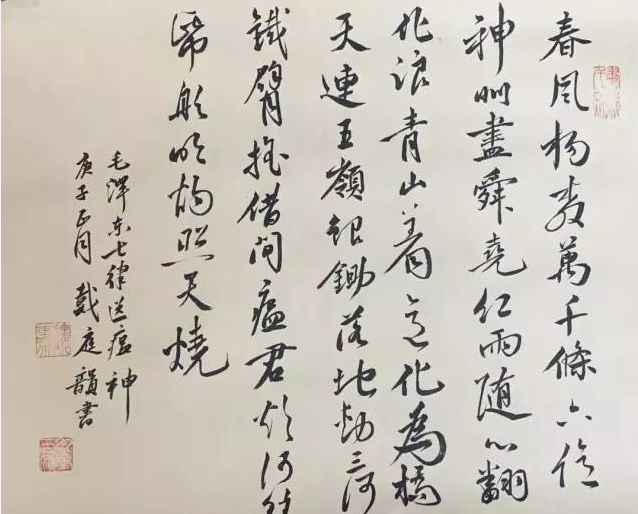 春風楊柳萬千條六億
神州盡舜堯紅雨隨心翻
作浪青山着意化為橋
天連五嶺銀鋤落地動三河
鐵臂搖借問瘟君欲何往
紙船明燭照天燒
毛澤東七律送瘟神
庚子正月 戴庭韻書